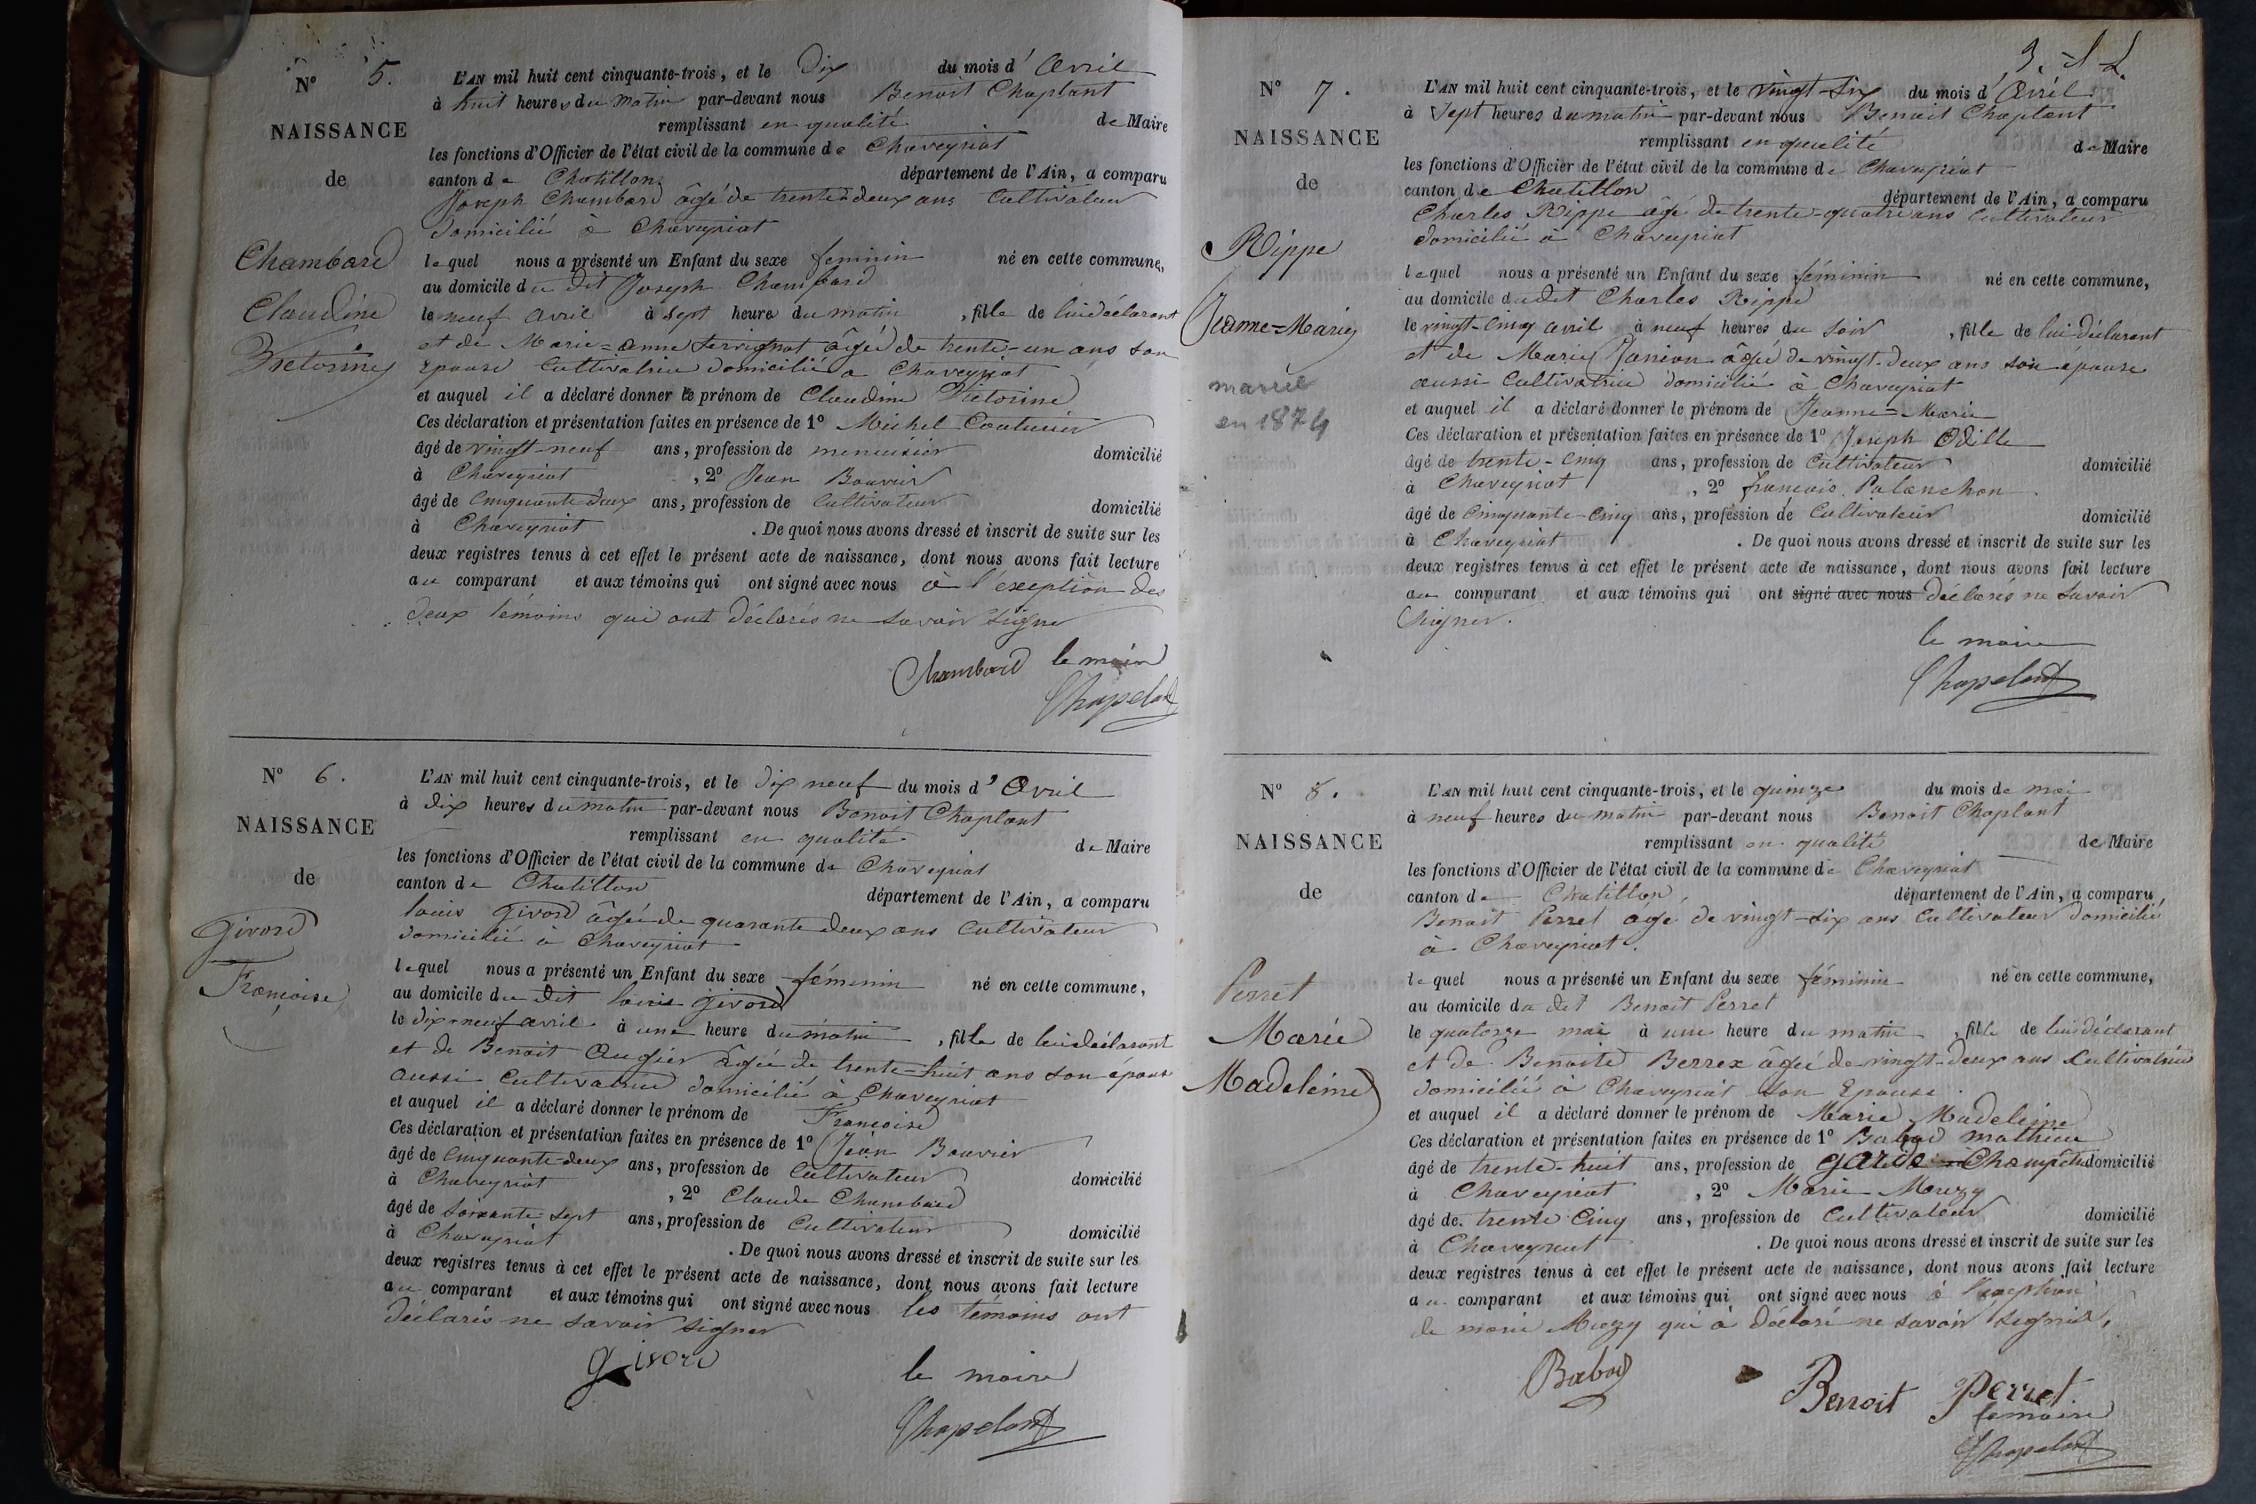 N° 5.
NAISSANCE
de
Chambard
Claudine
Victorine
L'AN mil huit cent cinquante-trois, et le Dix du mois d' Avril
à huit heures du matin par-devant nous Benoit Chaplant
remplissant en qualité de Maire
les fonctions d'Officier de l'état civil de la commune de Chaveyriat
canton de Chatillon département de l'Ain, a comparu
Joseph Chambard âgé de trente deux ans Cultivateur
domicilié à Chaveyriat
lequel nous a présenté un Enfant du sexe feminin né en cette commune,
au domicile du dit Joseph Chambard
le neuf avril à sept heure du matin , fille de lui déclarant
et de Marie=anne âgée de trente-un ans son
Epouse Cultivatrice domicilié a Chaveyriat
et auquel il a déclaré donner le prénom de Claudine Victorine
Ces déclaration et présentation faites en présence de 1° Michel Couturier
âgé de vingt-neuf ans, profession de menuisier domicilié
à Chaveyriat , 2° Jean Bouvier
âgé de Cinquante deux ans, profession de Cultivateur domicilié
à Chaveyriat . De quoi nous avons dressé et inscrit de suite sur les
deux registres tenus à cet effet le présent acte de naissance, dont nous avons fait lecture
au comparant et aux témoins qui ont signé avec nous à l'exeption des
deux témoins qui ont déclarés ne savoir signer
Chambard le maire
Chapeland
N° 6.
NAISSANCE
de
Givord
Françoise
L'AN mil huit cent cinquante-trois, et le dix neuf du mois d' Avril
à dix heures du matin par-devant nous Benoit Chaplant
remplissant en qualité de Maire
les fonctions d'Officier de l'état civil de la commune de Chaveyriat
canton de Chatillon département de l'Ain, a comparu
louis Givord âgé de quarante deux ans Cultivateur
domicilié à Chaveyriat
lequel nous a présenté un Enfant du sexe féminin né en cette commune,
au domicile du dit louis Givord
le dix-neuf avril à une heure du matin , fille de lui déclarant
et de Benoit Augier âgée de trente-huit ans son épouse
aussi Cultivatrice domicilié à Chaveyriat
et auquel il a déclaré donner le prénom de Françoise
Ces déclaration et présentation faites en présence de 1° Jean Bouvier
âgé de Cinquante deux ans, profession de Cultivateur domicilié
à Chaveyriat , 2° Claude Chambard
âgé de soixante sept ans, profession de Cultivateur domicilié
à Chaveyriat . De quoi nous avons dressé et inscrit de suite sur les
deux registres tenus à cet effet le présent acte de naissance, dont nous avons fait lecture
au comparant et aux témoins qui ont signé avec nous les témoins ont
déclarés ne savoir signer
Givord le maire
Chapeland
N° 7.
NAISSANCE
de
Rippe
Jeanne=Marie
mariée
en 1874
L'AN mil huit cent cinquante-trois, et le vingt-six du mois d' Avril
à Sept heures du matin par-devant nous Benoit Chaplant
remplissant en qualité de Maire
les fonctions d'Officier de l'état civil de la commune de Chaveyriat
canton de Chatillon département de l'Ain, a comparu
Charles Rippe âgé de trente-quatre ans Cultivateur
domicilié à Chaveyriat
lequel nous a présenté un Enfant du sexe féminin né en cette commune,
au domicile du dit Charles Rippe
le vingt-cinq avril à neuf heures du soir , fille de lui déclarant
et de Marie Janion âgée de vingt-deux ans son épouse
aussi Cultivatrice domicilié à Chaveyriat
et auquel il a déclaré donner le prénom de Jeanne=Marie
Ces déclaration et présentation faites en présence de 1° Joseph Odille
âgé de trente-cinq ans, profession de Cultivateur domicilié
à Chaveyriat , 2° françois Palanchon
âgé de Cinquante-Cinq ans, profession de Cultivateur domicilié
à Chaveyriat . De quoi nous avons dressé et inscrit de suite sur les
deux registres tenus à cet effet le présent acte de naissance, dont nous avons fait lecture
au comparant et aux témoins qui ont signé avec nous déclarés ne savoir
Signer.
le maire
Chapeland
N° 8.
NAISSANCE
de
Perret
Marie
Madeleine
L'AN mil huit cent cinquante-trois, et le quinze du mois de mai
à neuf heures du matin par-devant nous Benoit Chaplant
remplissant en qualité de Maire
les fonctions d'Officier de l'état civil de la commune de Chaveyriat
canton de Chatillon département de l'Ain, a comparu
Benoit Perret âgé de vingt-six ans Cultivateur domicilié
à Chaveyriat.
lequel nous a présenté un Enfant du sexe féminin né en cette commune,
au domicile du dit Benoit Perret
le quatorze mai à une heure du matin , fille de lui déclarant
et de Benoite Berrex âgée de vingt-deux ans Cultivatrice
domicilié à Chaveyriat son Epouse.
et auquel il a déclaré donner le prénom de Marie Madeleine
Ces déclaration et présentation faites en présence de 1° Babad mathieu
âgé de trente-huit ans, profession de garde=Champêtre domicilié
à Chaveyriat , 2° Marie Muzy
âgé de trente Cinq ans, profession de Cultivateur domicilié
à Chaveyriat . De quoi nous avons dressé et inscrit de suite sur les
deux registres tenus à cet effet le présent acte de naissance, dont nous avons fait lecture
au comparant et aux témoins qui ont signé avec nous à l'exeption
de marie Muzy qui a déclaré ne savoir signer,
Babad Benoit Perret
le maire
Chapeland